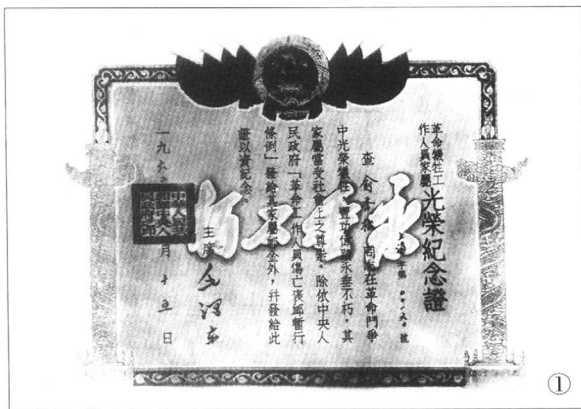 革命犧牲工
作人員家屬
光榮紀念證
查俞秀松同志在革命鬥爭
中光榮犧牲,豐功偉績永垂不朽,其
家屬當受社會上之尊崇。除依中央人
民政府「革命工作人員傷亡褒卹暫行
條例」發給其家屬卹金外,并發給此
證以資紀念。
主席 毛澤東
一九六 月十五日
①